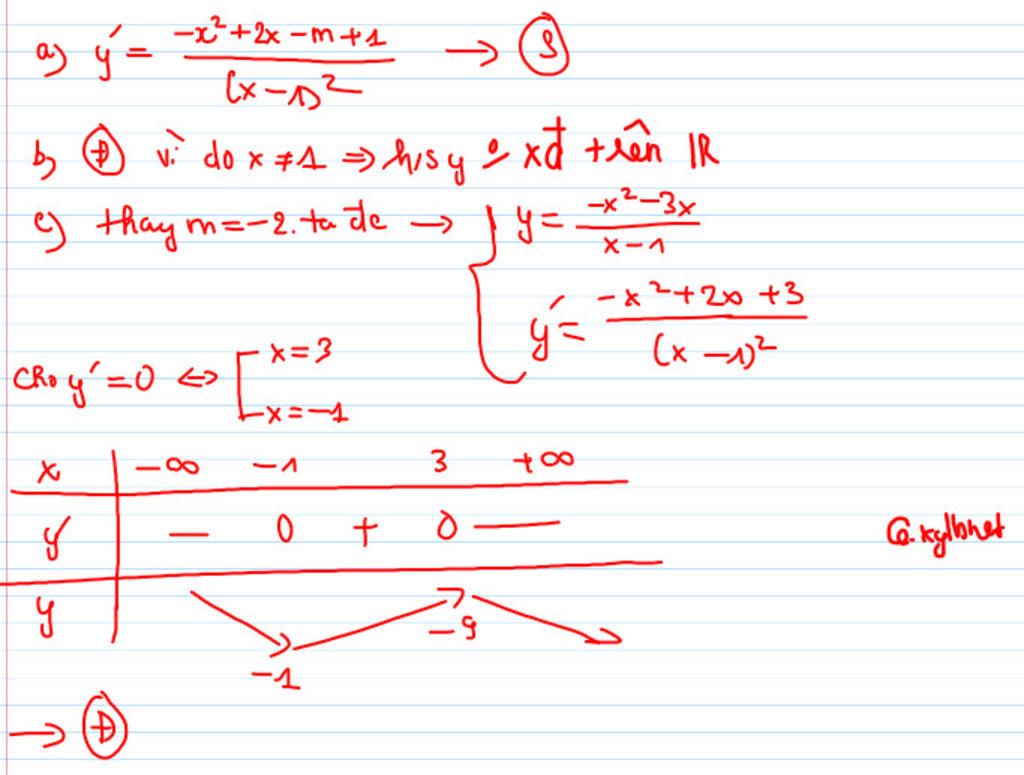 a) y' = (-x² + 2x - m + 1) / (x - 1)² → Ⓢ
b) Ⓓ vì do x ≠ 1 ⇒ h/s y o xđ trên IR
c) thay m = -2. ta đc → { y = (-x² - 3x) / (x - 1)
y' = (-x² + 2x + 3) / (x - 1)²
Cho y' = 0 ⇔ [ x = 3
x = -1
x | -∞ -1 3 +∞
y' | — 0 + 0 —
y | ↘ -1 ↗ -9 ↘
→ Ⓓ